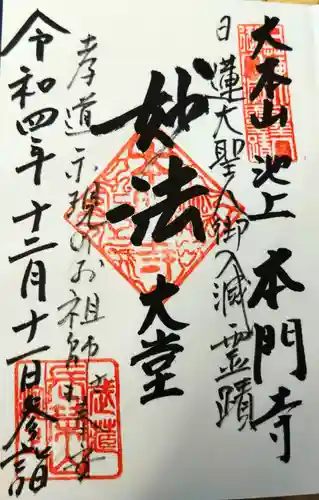 大本山 池上 本門寺
日蓮大聖人御入滅霊蹟
妙法
大堂
孝道示現のお祖師さま
令和四年十二月十一日参詣